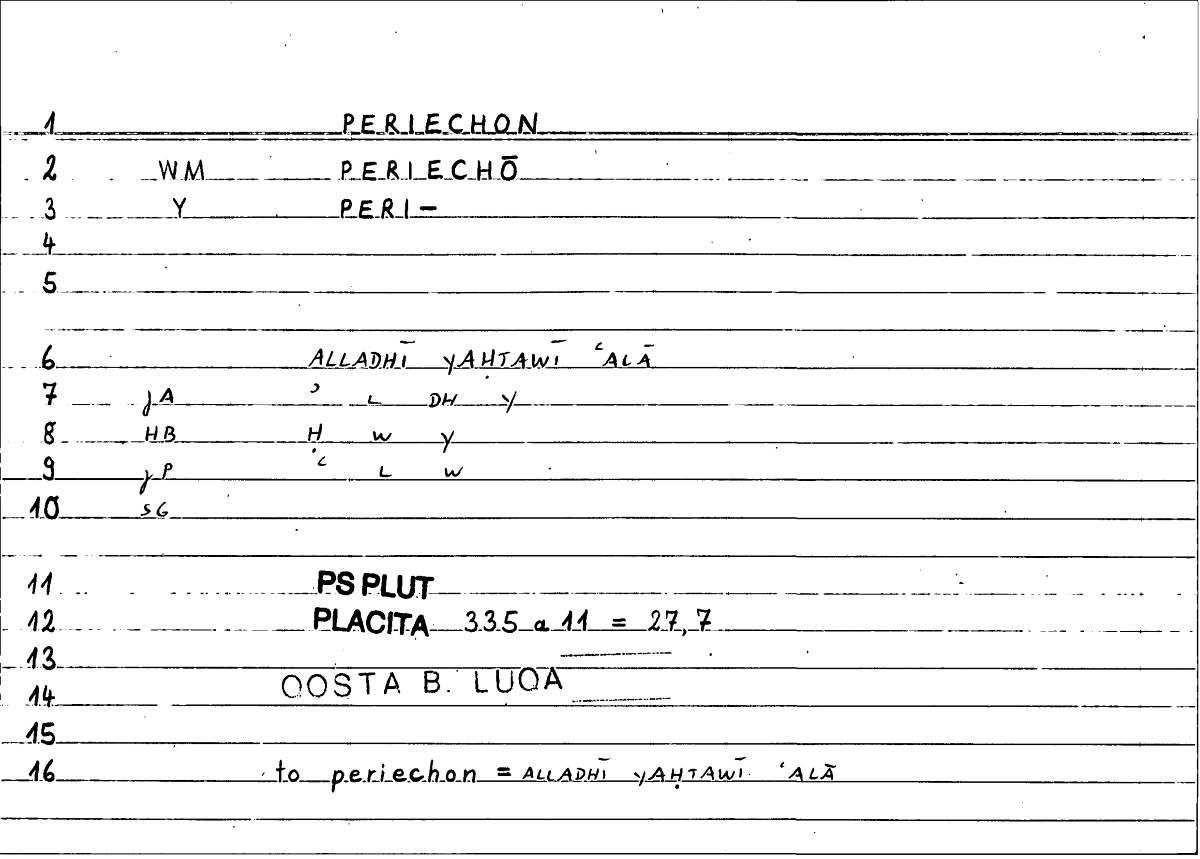 1 PERIECHON
2 WM PERIECHŌ
3 Y PERI–
4
5
6 ALLADHĪ YAḤTAWĪ ʿALĀ
7 JA ʾ L DH Y
8 HB Ḥ W Y
9 JP ʿ L W
10 SG
11 PS PLUT
12 PLACITA 335 a 11 = 27,7
13
14 QOSTA B. LUQA
15
16 to periechon = ALLADHĪ YAḤTAWĪ ʿALĀ